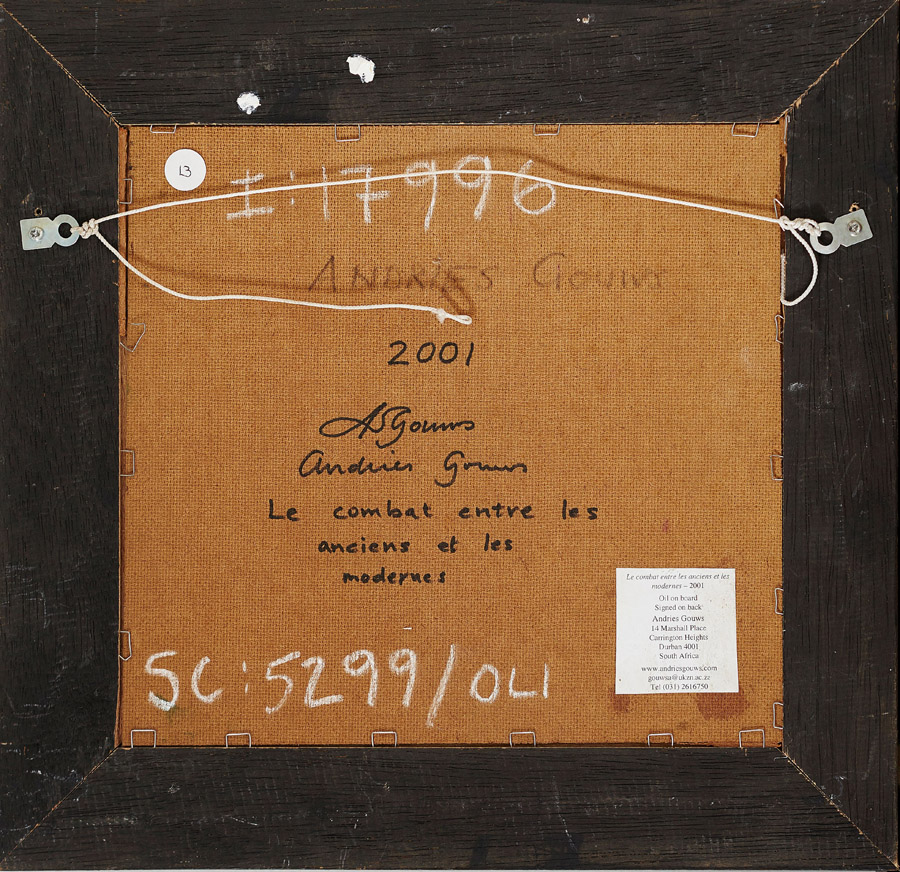 13
I:17996
ANDRIES GOUWS
2001
ASGouws
Andries Gouws
Le combat entre les
anciens et les
modernes
SC:5299/OLI
Le combat entre les anciens et les
modernes – 2001
Oil on board
Signed on back
Andries Gouws
14 Marshall Place
Carrington Heights
Durban 4001
South Africa
www.andriesgouws.com
gouwsa@ukzn.ac.za
Tel (031) 2616750